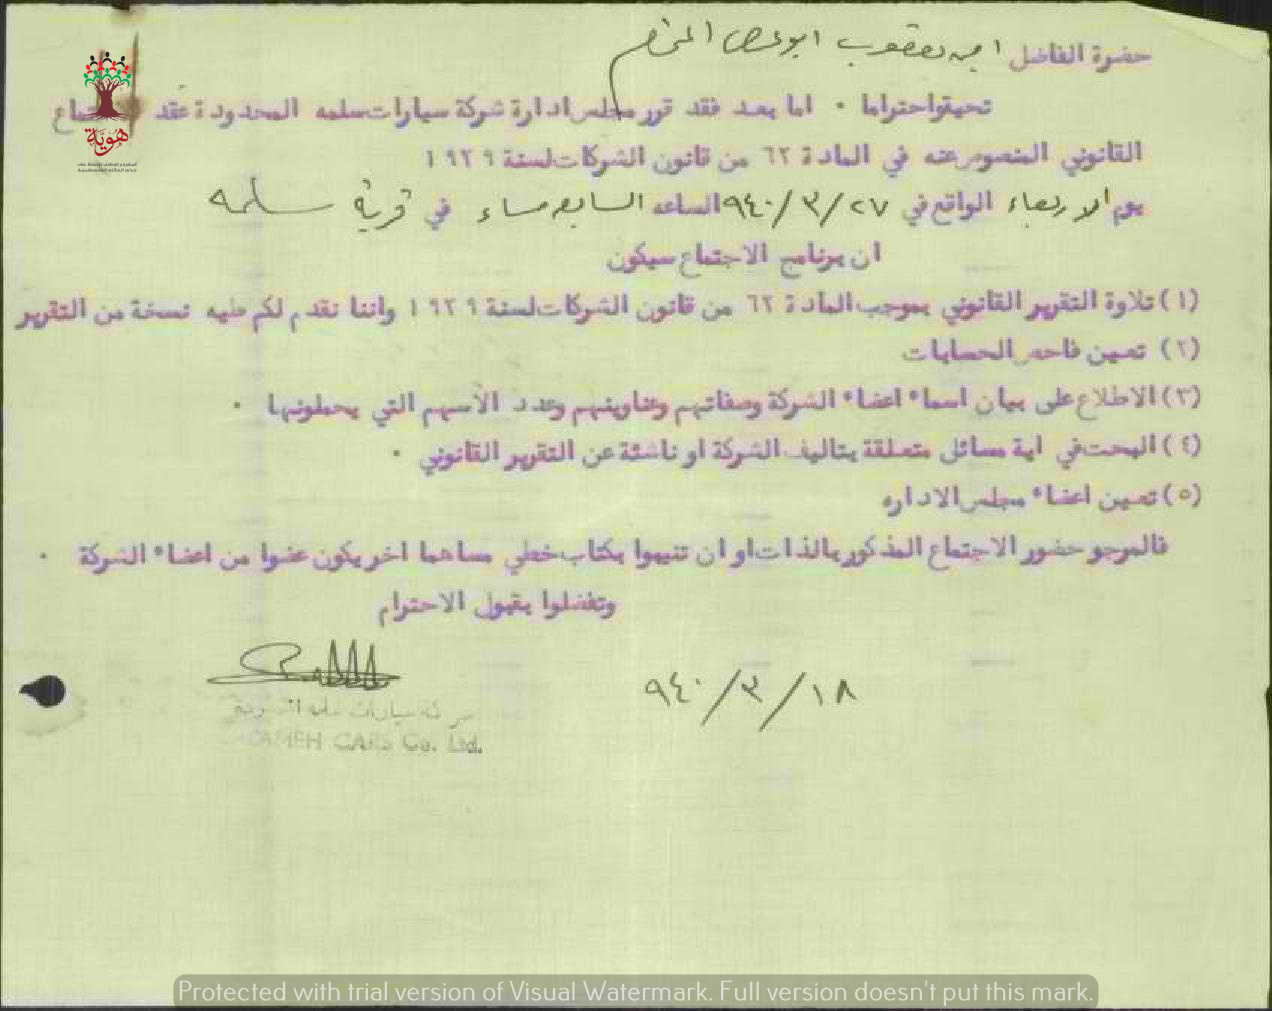 حضرة الفاضل امين يعقوب ابو عصا المحترم
تحية واحتراما ٠ اما بعد فقد قرر مجلس ادارة شركة سيارات سلمه المحدودة عقد الاجتماع
القانوني المنصوص عنه في المادة ٦٢ من قانون الشركات لسنة ١٩٢٩
يوم الاربعاء الواقع في ٢٧/٣/٩٤٠ الساعه السابعه مساء في قرية سلمه
ان برنامج الاجتماع سيكون
(١) تلاوة التقرير القانوني بموجب المادة ٦٢ من قانون الشركات لسنة ١٩٢٩ واننا نقدم لكم طيه نسخة من التقرير
(٢) تعيين فاحص الحسابات
(٣) الاطلاع على بيان اسماء اعضاء الشركة وصفاتهم وعناوينهم وعدد الأسهم التي يحملونها ٠
(٤) البحث في اية مسائل متعلقة بتاليف الشركة او ناشئة عن التقرير القانوني ٠
(٥) تعيين اعضاء مجلس الاداره
فالمرجو حضور الاجتماع المذكور بالذات او ان تنيبوا بكتاب خطي مساهما اخر يكون عضوا من اعضاء الشركة ٠
وتفضلوا بقبول الاحترام
١٨/٣/٩٤٠
شركة سيارات سلمه
CARS Co. Ltd.
هُويَّة
Protected with trial version of Visual Watermark. Full version doesn't put this mark.